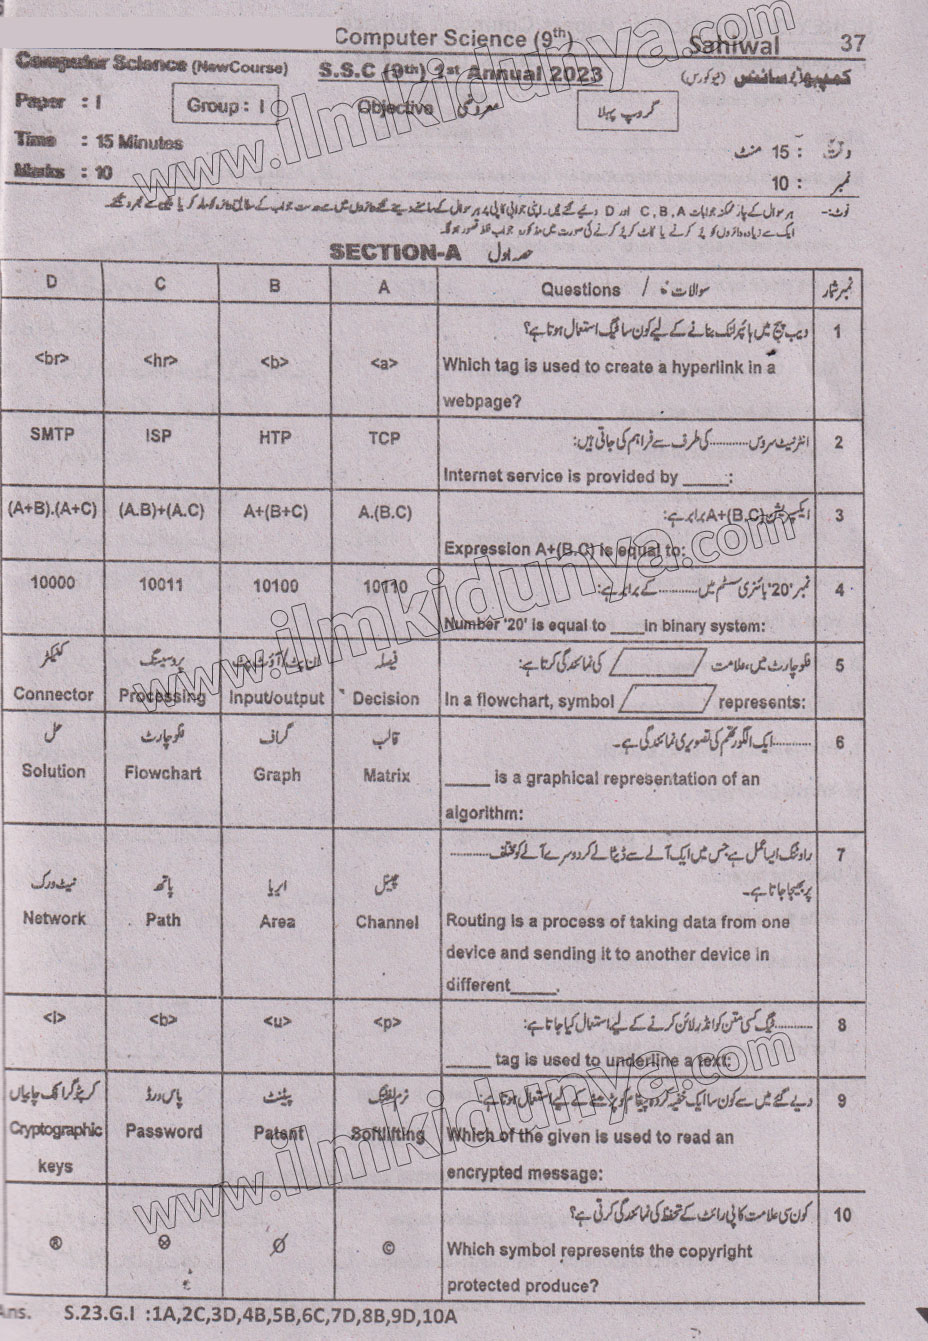 Computer Science (9th) Sahiwal 37
Computer Science (NewCourse) S.S.C (9th) 1st Annual 2023 کمپیوٹر سائنس (نیو کورس)
Paper : I Group : I Objective معروضی گروپ پہلا
Time : 15 Minutes وقت : 15 منٹ
Marks : 10 نمبر : 10
نوٹ:- ہر سوال کے چار ممکنہ جوابات C, B, A اور D دیے گئے ہیں۔
SECTION-A حصہ اول
D C B A Questions / سوالات نمبر شمار
ویب پیج میں ہائپر لنک بنانے کے لیے کون سا ٹیگ استعمال ہوتا ہے؟ 1
<br> <hr> <b> <a> Which tag is used to create a hyperlink in a
webpage?
SMTP ISP HTP TCP انٹرنیٹ سروس ........... کی طرف سے فراہم کی جاتی ہیں: 2
Internet service is provided by _____:
(A+B).(A+C) (A.B)+(A.C) A+(B+C) A.(B.C) ایکسپریشن A+(B.C) برابر ہے: 3
Expression A+(B.C) is equal to:
10000 10011 10100 10110 نمبر '20' بائنری سسٹم میں ........... کے برابر ہے: 4
Number '20' is equal to ____in binary system:
کنیکٹر پروسیسنگ ان پٹ/آؤٹ پٹ فیصلہ فلوچارٹ میں، علامت کی نمائندگی کرتا ہے: 5
Connector Processing Input/output Decision In a flowchart, symbol represents:
حل فلوچارٹ گراف قالب ...........ایک الگورتھم کی تصویری نمائندگی ہے۔ 6
Solution Flowchart Graph Matrix _____ is a graphical representation of an
algorithm:
راؤٹنگ ایسا عمل ہے جس میں ایک آلے سے ڈیٹا لے کر دوسرے آلے کو مختلف ........... 7
پر بھیجا جاتا ہے۔
نیٹ ورک پاتھ ایریا چینل
Network Path Area Channel Routing is a process of taking data from one
device and sending it to another device in
different_____.
<I> <b> <u> <p> ...........ٹیگ کسی متن کو انڈر لائن کرنے کے لیے استعمال کیا جاتا ہے: 8
_____ tag is used to underline a text:
کرپٹوگرافک چابیاں پاس ورڈ پیٹنٹ سافٹ لفٹنگ دیے گئے میں سے کون سا ایک خفیہ کردہ پیغام کو پڑھنے کے لیے استعمال ہوتا ہے: 9
Cryptographic Password Patent Softlifting Which of the given is used to read an
keys encrypted message:
کون سی علامت کاپی رائٹ کے تحفظ کی نمائندگی کرتی ہے؟ 10
® ⊗ Ø © Which symbol represents the copyright
protected produce?
Ans. S.23.G.I :1A,2C,3D,4B,5B,6C,7D,8B,9D,10A
www.ilmkidunya.com
www.ilmkidunya.com
www.ilmkidunya.com